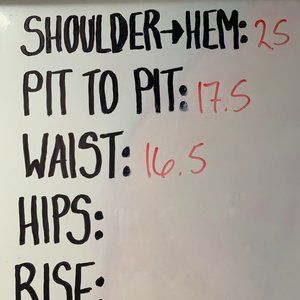 SHOULDER→HEM: 25
PIT TO PIT: 17.5
WAIST: 16.5
HIPS:
RISE: